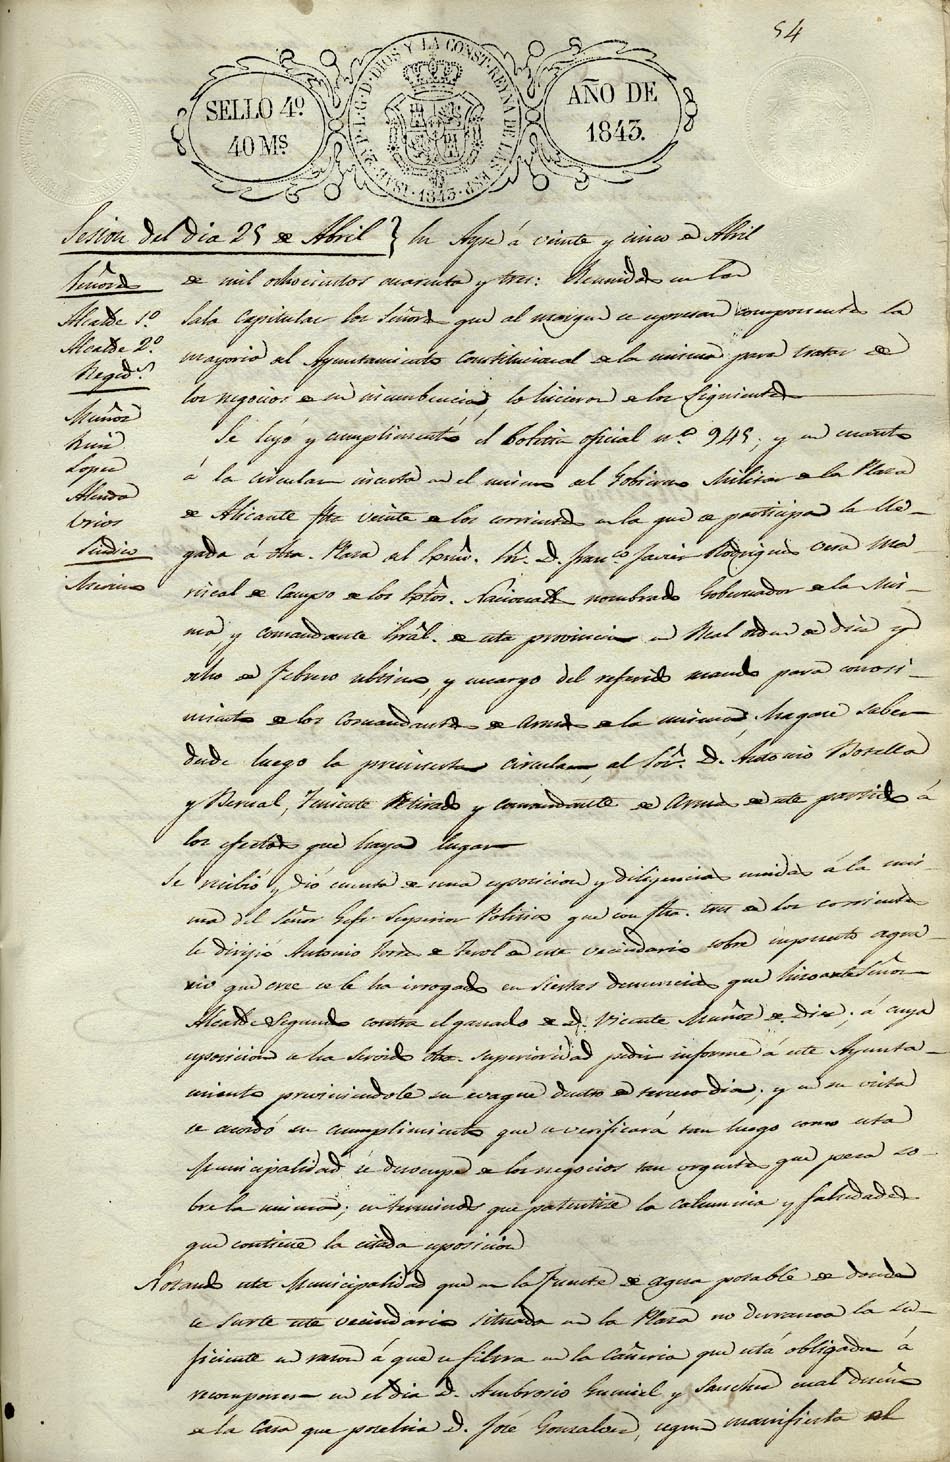 54
SELLO 4º
40 Ms
ISAB. 2ª P. L. G. D. DIOS Y LA CONST. REYNA DE LAS ESP. 1843
AÑO DE
1843.
Sesion del dia 25 de Abril } En Aspe á veinte y cinco de Abril
Señores
Alcalde 1º
Alcalde 2º
Regid.s
Muñoz
Ruiz
Lopez
Almodo
Urios
Sindico
de mil ochocientos cuarenta y tres: Reunidos en las
Sala Capitular los Señores que al margen se espresan componentes la
mayoria del Ayuntamiento Constitucional de la misma para tratar de
los negocios de su incumbencia, lo hicieron de los siguientes
Se leyó y cumplimentó el boletin oficial nº 945; y en cuanto
á la circular inserta en el mismo del Gobierno Militar de la Plaza
de Alicante fha veinte de los corrientes en la que se participa la lle-
gada á dha. Plaza del Exmo. Sr. D. Franco Javier Rodriguez Vera Ma-
riscal de Campo de los Extos. Nacionales nombrado Gobernador de la mis-
ma y comandante Gral. de esta provincia en Real orden de diez y
ocho de Febrero ultimo, y encargo del referido mando para conosi-
miento de los Comandantes de armas de la misma, hagase saber
desde luego la preinserta circular, al Sor. D. Antonio Botella
y Bernal, Teniente Retirado y comandante de Armas de este partido á
los efectos que haya lugar
Se recibió y dió cuenta de una esposicion y diligencias unidas á la mis-
ma del Señor Gefe Superior Politico que con fha. tres de los corrientes
le dirijió Antonio Torres de Terol de este vecindario sobre supuesto agra-
vio que cree se le ha irrogado en siertas denuncias que hizo ante el Señor
Alcalde Segundo contra el ganado de D. Vicente Muñoz de Diez; á cuya
esposicion se ha servido dha. superioridad pedir informe á este Ayunta-
miento previniendole su evaque dentro de tercero dia; y en su vista
se acordó su cumplimiento que se verificará tan luego como esta
Municipalidad se desocupe de los negocios tan urgentes que pesa so-
bre la misma; en terminos que patentize la calumnia y falsedades
que contiene la citada esposicion
Notando esta Municipalidad que en la Fuente de agua potable de donde
se surte este vecindario situada en la Plaza no derrama la su-
ficiente en razon á que se filtra en la cañeria que está obligada á
recomponer en el dia D. Ambrosio y Sanchez cual dueño
de la Casa que posehia D. José Gonzalez, segun manifiesta el